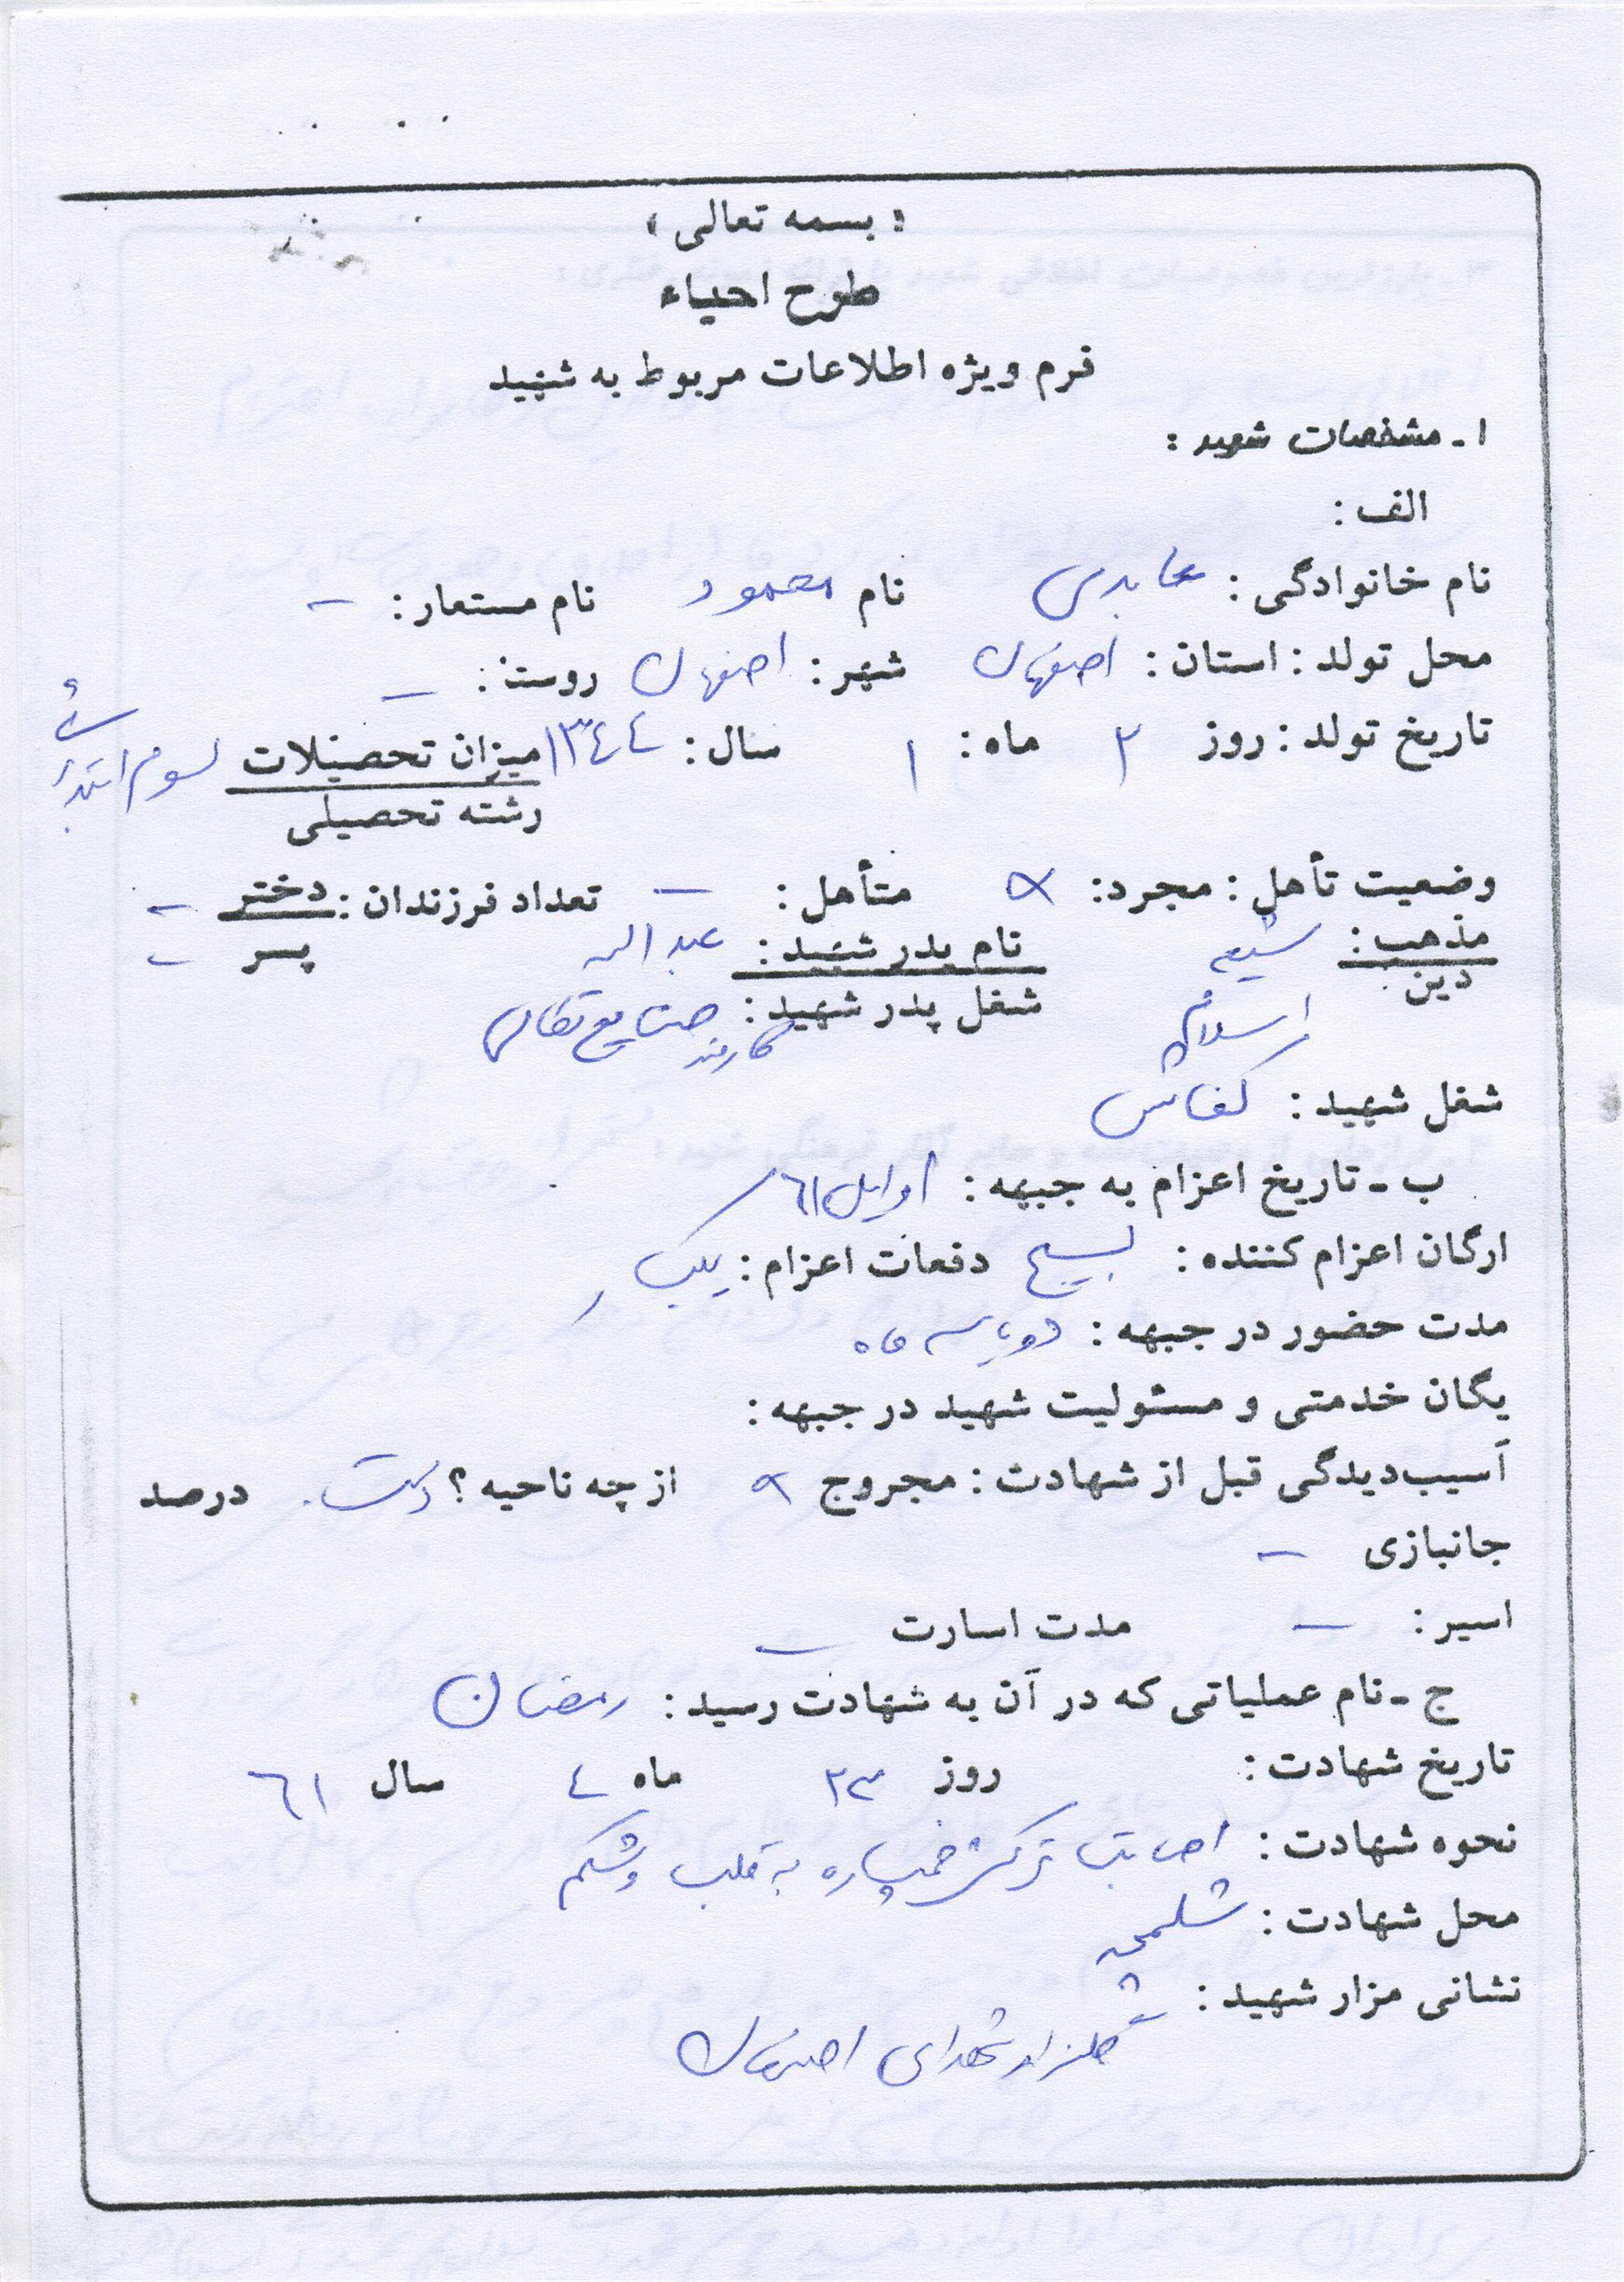 « بسمه تعالی »
طرح احیاء
فرم ویژه اطلاعات مربوط به شهید
۱ـ مشخصات شهید :
الف :
نام خانوادگی : عابدی نام محمود نام مستعار : –
محل تولد : استان : اصفهان شهر : اصفهان روستا : –
تاریخ تولد : روز ۲ ماه : ۱ سال : ۱۳٤٤ میزان تحصیلات سوم ابتدائی
رشته تحصیلی
وضعیت تأهل : مجرد : × متأهل : – تعداد فرزندان : دختر –
پسر –
مذهب : شیعه نام پدر شهید : عبداله
دین : اسلام شغل پدر شهید : کارمند صنایع نظامی
شغل شهید : کفاش
ب ـ تاریخ اعزام به جبهه : اوایل ٦۱
ارگان اعزام کننده : بسیج دفعات اعزام : یکبار
مدت حضور در جبهه : دو یا سه ماه
یگان خدمتی و مسئولیت شهید در جبهه :
آسیب‌دیدگی قبل از شهادت : مجروح × از چه ناحیه ؟ دست درصد
جانبازی –
اسیر : – مدت اسارت –
ج ـ نام عملیاتی که در آن به شهادت رسید : رمضان
تاریخ شهادت : روز ۲۳ ماه ٤ سال ٦۱
نحوه شهادت : اصابت ترکش خمپاره به قلب و شکم
محل شهادت : شلمچه
نشانی مزار شهید :
گلزار شهدای اصفهان